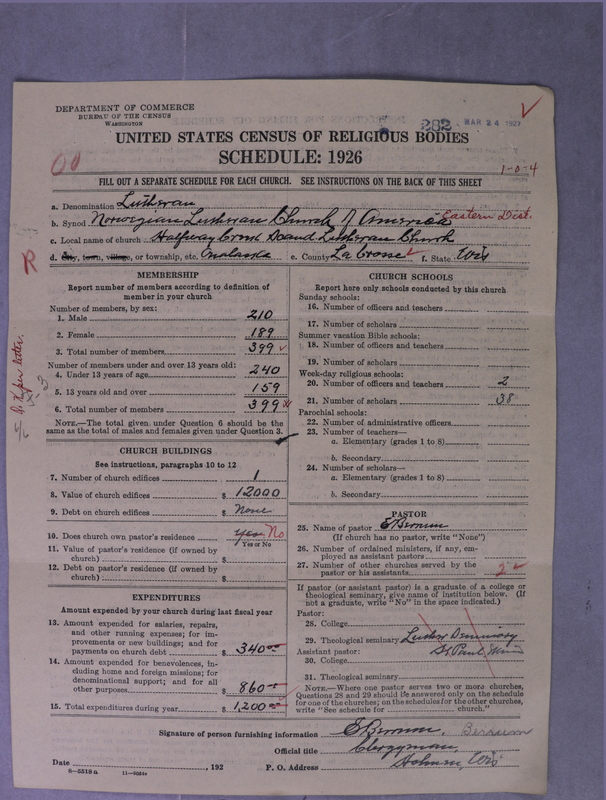 DEPARTMENT OF COMMERCE
BUREAU OF THE CENSUS
WASHINGTON
282 MAR 24 1927
UNITED STATES CENSUS OF RELIGIOUS BODIES
SCHEDULE: 1926
1-0-4
FILL OUT A SEPARATE SCHEDULE FOR EACH CHURCH. SEE INSTRUCTIONS ON THE BACK OF THIS SHEET
a. Denomination Lutheran
b. Synod Norwegian Lutheran Church of America Eastern Dist.
c. Local name of church Halfway Creek Lutheran Church
d. City, town, village, or township, etc. Onalaska e. County La Crosse f. State Wis
R
MEMBERSHIP
Report number of members according to definition of
member in your church
Number of members, by sex:
1. Male 210
2. Female 189
3. Total number of members 399
Number of members under and over 13 years old:
4. Under 13 years of age 240
5. 13 years old and over 159
6. Total number of members 399
NOTE.—The total given under Question 6 should be the
same as the total of males and females given under Question 3.
CHURCH BUILDINGS
See instructions, paragraphs 10 to 12
7. Number of church edifices 1
8. Value of church edifices $ 12000
9. Debt on church edifices $ None
10. Does church own pastor's residence Yes No
Yes or No
11. Value of pastor's residence (if owned by
church) $
12. Debt on pastor's residence (if owned by
church) $
EXPENDITURES
Amount expended by your church during last fiscal year
13. Amount expended for salaries, repairs,
and other running expenses; for im-
provements or new buildings; and for
payments on church debt $ 340
14. Amount expended for benevolences, in-
cluding home and foreign missions; for
denominational support; and for all
other purposes $ 860
15. Total expenditures during year $ 1,200
CHURCH SCHOOLS
Report here only schools conducted by this church
Sunday schools:
16. Number of officers and teachers
17. Number of scholars
Summer vacation Bible schools:
18. Number of officers and teachers
19. Number of scholars
Week-day religious schools:
20. Number of officers and teachers 2
21. Number of scholars 38
Parochial schools:
22. Number of administrative officers
23. Number of teachers—
a. Elementary (grades 1 to 8)
b. Secondary
24. Number of scholars—
a. Elementary (grades 1 to 8)
b. Secondary
PASTOR
25. Name of pastor E Berrum
(If church has no pastor, write "None")
26. Number of ordained ministers, if any, em-
ployed as assistant pastors
27. Number of other churches served by the
pastor or his assistants 2
If pastor (or assistant pastor) is a graduate of a college or
theological seminary, give name of institution below. (If
not a graduate, write "No" in the space indicated.)
Pastor:
28. College
29. Theological seminary Luther Seminary
Assistant pastor: St. Paul Minn
30. College
31. Theological seminary
NOTE.—Where one pastor serves two or more churches,
Questions 28 and 29 should be answered only on the schedule
for one of the churches; on the schedules for the other churches,
write "See schedule for church."
Signature of person furnishing information E Berrum, Berrum
Official title Clergyman,
Date , 192 P. O. Address Holmen, Wis
8—5518a